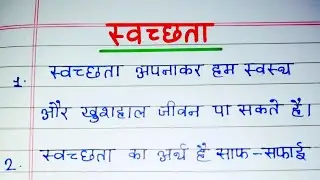 स्वच्छता
1. स्वच्छता अपनाकर हम स्वस्थ
और खुशहाल जीवन पा सकते है।
2. स्वच्छता का अर्थ है साफ-सफाई